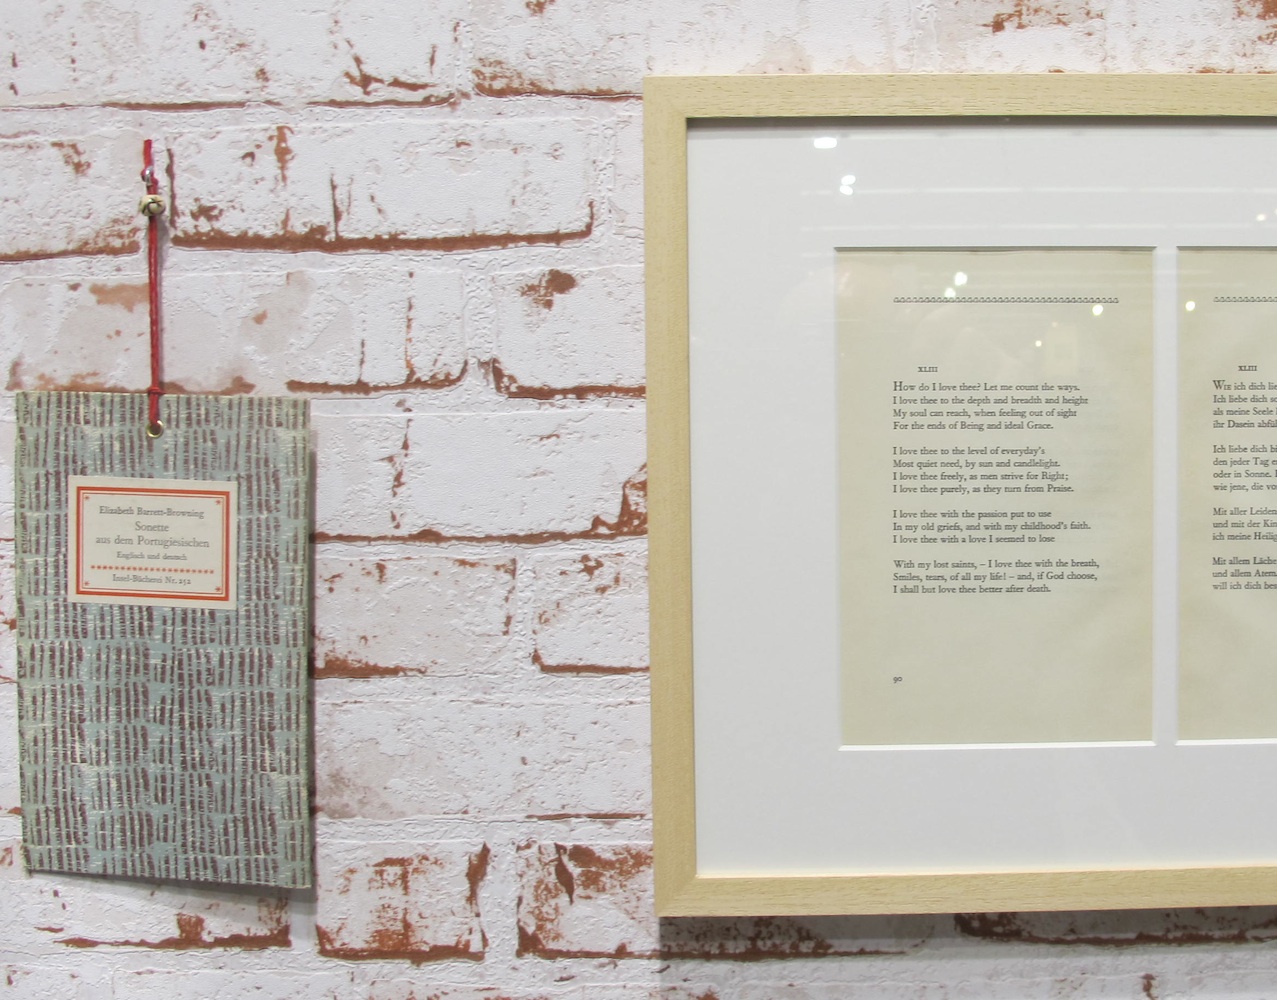 Elizabeth Barrett-Browning
Sonette
aus dem Portugiesischen
Englisch und deutsch
Insel-Bücherei Nr. 252
XLIII
How do I love thee? Let me count the ways.
I love thee to the depth and breadth and height
My soul can reach, when feeling out of sight
For the ends of Being and ideal Grace.
I love thee to the level of everyday's
Most quiet need, by sun and candlelight.
I love thee freely, as men strive for Right;
I love thee purely, as they turn from Praise.
I love thee with the passion put to use
In my old griefs, and with my childhood's faith.
I love thee with a love I seemed to lose
With my lost saints, – I love thee with the breath,
Smiles, tears, of all my life! – and, if God choose,
I shall but love thee better after death.
90
XLIII
Wie ich dich
Ich liebe dich
als meine Seele
ihr Dasein
Ich liebe dich
den jeder Tag
oder in Sonne.
wie jene, die
Mit aller Leiden
und mit der
ich meine
Mit allem
und allem Atem
will ich dich